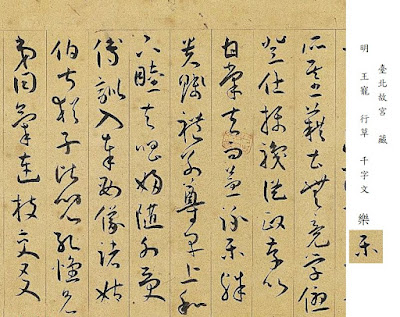 臺北故宮 藏
明 王寵 行草 千字文 樂
樂
所基籍甚無竟學優
登仕攝職從政存以
甘棠去而益詠樂殊
貴賤禮別尊卑上和
下睦夫唱婦隨外受
傅訓入奉母儀諸姑
伯叔猶子比兒孔懷兄
弟同氣連枝交友